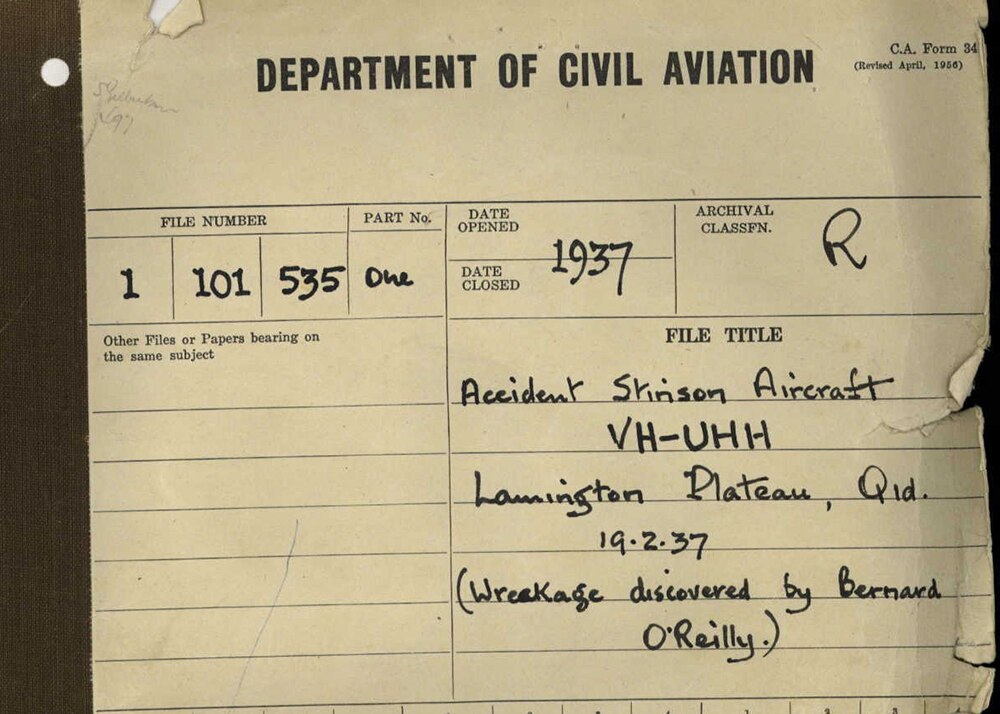 C.A. Form 34
(Revised April, 1956)
DEPARTMENT OF CIVIL AVIATION
FILE NUMBER
PART No.
DATE OPENED
ARCHIVAL CLASSFN.
1 101 535 One
1937
R
DATE CLOSED
Other Files or Papers bearing on
the same subject
FILE TITLE
Accident Stinson Aircraft
VH-UHH
Lamington Plateau, Qld.
19.2.37
(Wreckage discovered by Bernard
O'Reilly.)